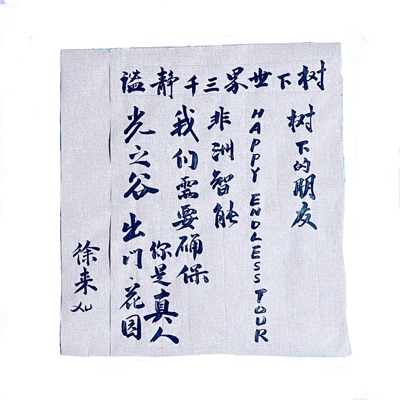 树下世界三千静谧
树下的朋友
HAPPY ENDLESS TOUR
非洲智能
我们需要确保
你是真人
光之谷 出门、花园
徐来
XU